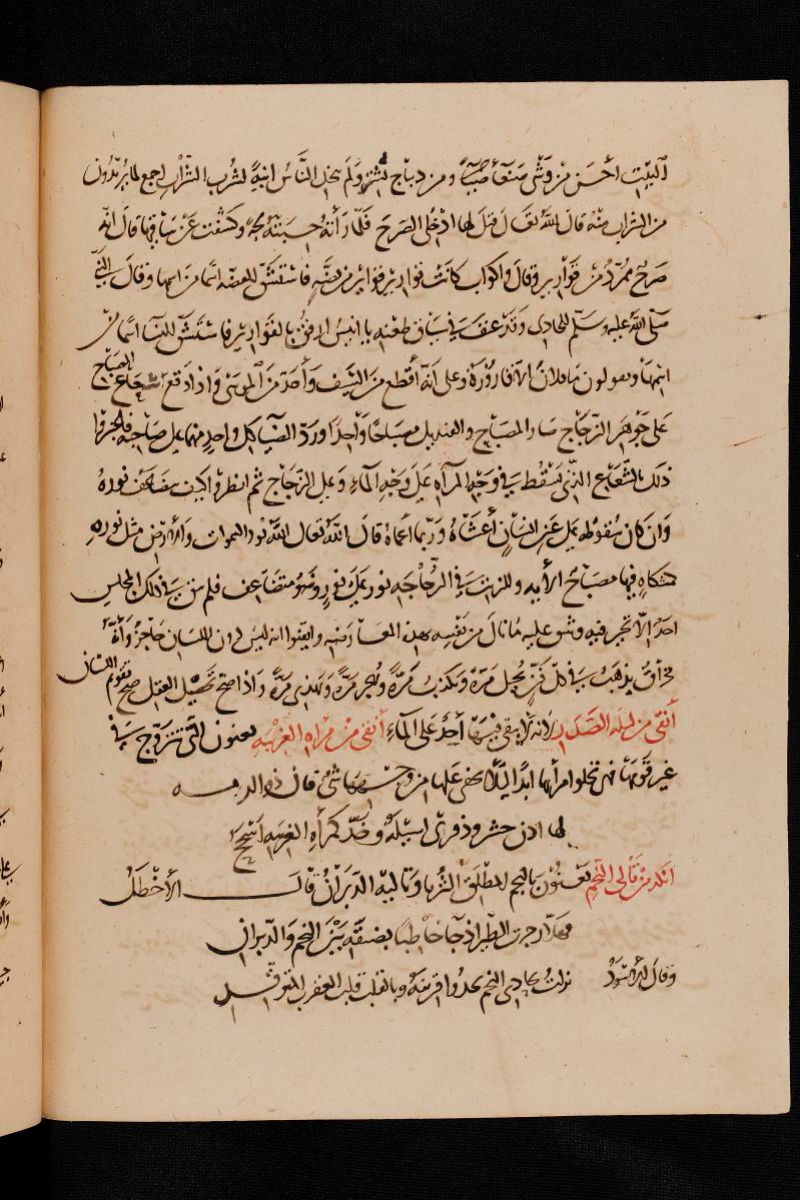 البيت أحسن من وشي صنعاء ومن ديباج تستر ولم يتخذ الناس انية لشرب الشراب اجمع لما يريدون
من الشراب منه قال الله تعالى قيل لها ادخلي الصرح فلما رأته حسبته لجة وكشفت عن ساقيها قال انه
صرح ممرد من قوارير وقال واكواب كانت قوارير قوارير من فضه فاشتق للفضه اسما من اسمها وقال النبي
صلى الله عليه وسلم للحادى وقد عنف في سياق ظعنه يا انيس ارفق بالقوارير فاشتق للنساء اسما من
اسمها ويقولون ما فلان الا قارورة وعلى انه أقطع من السيف وأحد من الموسى واذا وقع شعاع المصباح
على جوهر الزجاج صار المصباح والقنديل مصباحا واحدا ورد الضياء كل واحد منهما على صاحبه
ذلك بالشعاع الذي يسقط في وجه المرآه على وجه الماء وعلى الزجاج ثم انظروا كيف يتضاعف نوره
وان كان سقوطه على عين انسان أعشاه وربما اعماه قال الله تعالى الله نور السموات والارض مثل نوره
كمشكاه فيها مصباح الأيه وللزيت في الزجاجه نور على نور وضوء متضاعف فلم يبق في ذلك المجلس
احد الا تحير فيه وشق عليه ما نال من نفسه بهذه المعارضه وايقنوا انه ليس دون اللسان حاجز وأنه
مخراق يذهب في كل فن يخيل مرة ويكذب مرة ويهجر مرة ويهذي مرة واذا صح تحصيل العقل صح تقويم اللسان
أنقى من ليلة الصدر لانه لا يبقى فيها أحد على الماء أنقى من مراه الغريبه يعنون التي تتزوج في
غير قومها فهي تجلو امرأتها ابدا لئلا يخفى عليها من وجهها شئ قال ذو الرمه
لها اذن حشر وذفرى اسيلة وخد كمرأه الغريبه اسجح
انكد من تالى النجم يعنون بالنجم المطلق الثريا وتاليه الدبران قال الأخطل
فهلا زجرت الطير اذ جا خاطبا بضيقه بين النجم والدبران
وقال الأسود نزلت بحادي النجم يحدوا قرينه وبالقلب قلب العقرب المتوقد